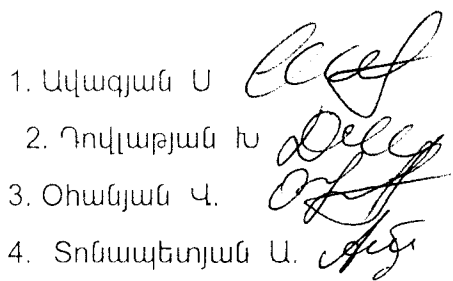 1. Ավագյան Ս
2. Դովլաթյան Խ
3. Օհանյան Վ.
4. Տոնապետյան Ա.